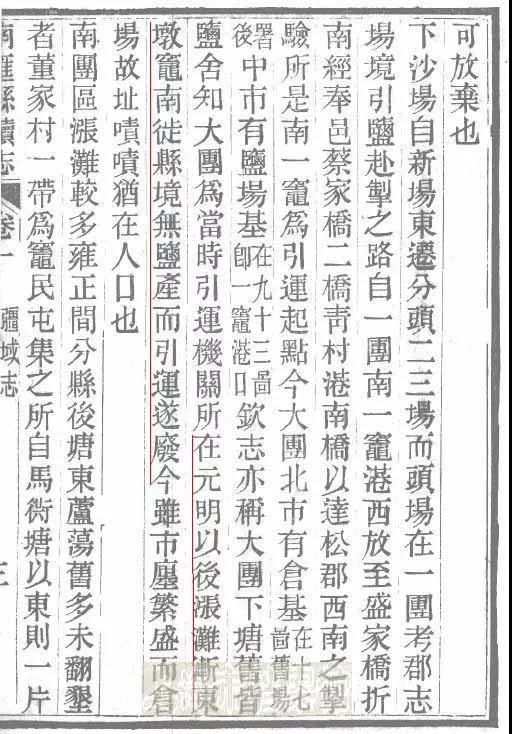 可放棄也
下沙場自新場東遷分頭二三場而頭場在一團考郡志
場境引鹽赴掣之路自一團南一竈港西放至盛家橋折
南經奉邑蔡家橋二橋靑村港南橋以達松郡西南之掣
驗所是南一竈爲引運起點今大團北市有倉基在十七啚舊場
署後中市有鹽場基在九十三啚卽一竈港口欽志亦稱大團下塘舊皆
鹽舍知大團爲當時引運機關所在元明以後漲灘漸東
墩竈南徙縣境無鹽產而引運遂廢今雖市廛繁盛而倉
場故址嘖嘖猶在人口也
南團區漲灘較多雍正間分縣後塘東蘆蕩舊多未翻墾
者董家村一帶爲竈民屯集之所自馬衖塘以東則一片
南匯縣續志 卷一 疆域志 三